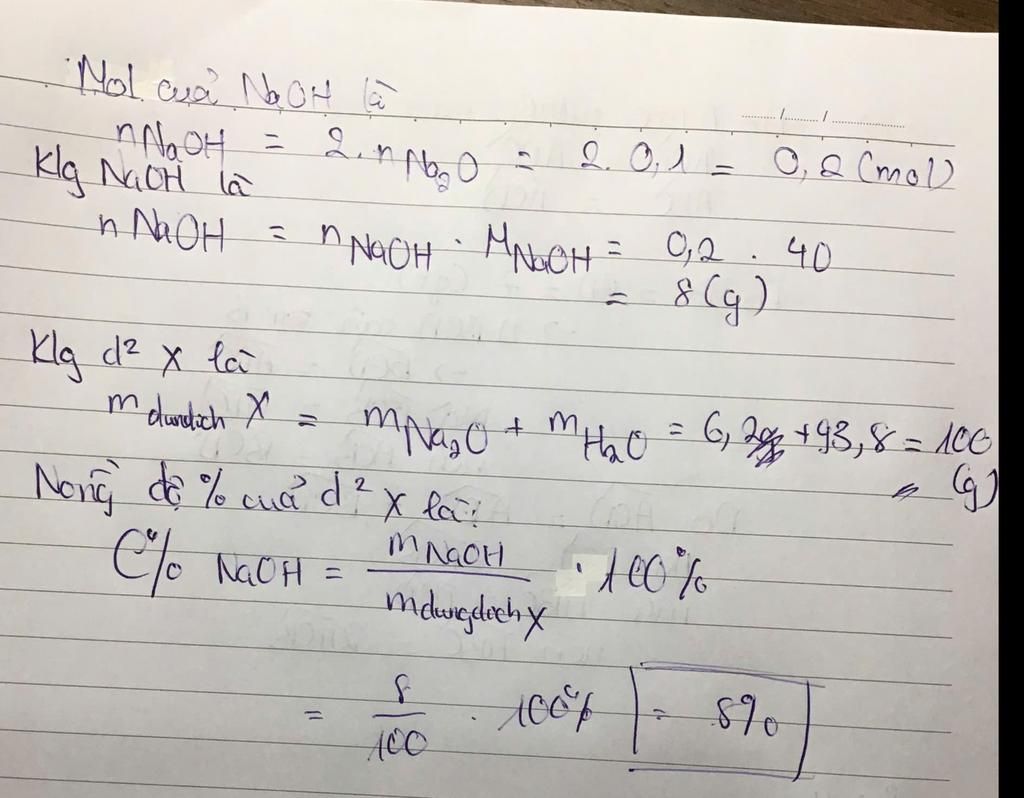 Mol của NaOH là
nNaOH = 2. nNa₂O = 2. 0,1 = 0,2 (mol)
Klg NaOH là
nNaOH = nNaOH . MNaOH = 0,2 . 40
= 8 (g)
Klg d² X là
m dundich X = mNa₂O + mH₂O = 6,2 + 93,8 = 100
(g)
Nồng độ % của d² X là:
C% NaOH = mNaOH / mdungdich X . 100%
= 8/100 . 100% = 8%